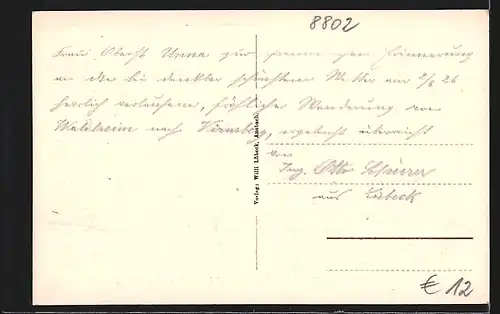 8802
Frau Oberst Unna zur Erinnerung
an die bei denkbar schlechtestem Wetter am 2/8 26
herrlich verlaufene, fröhliche Wanderung von
Waldheim nach Virnsberg, ergebenst überreicht
von
Ing. Otto Scheurer
aus Lübeck
Verlag: Willi Löbeck, Ansbach.
€ 12